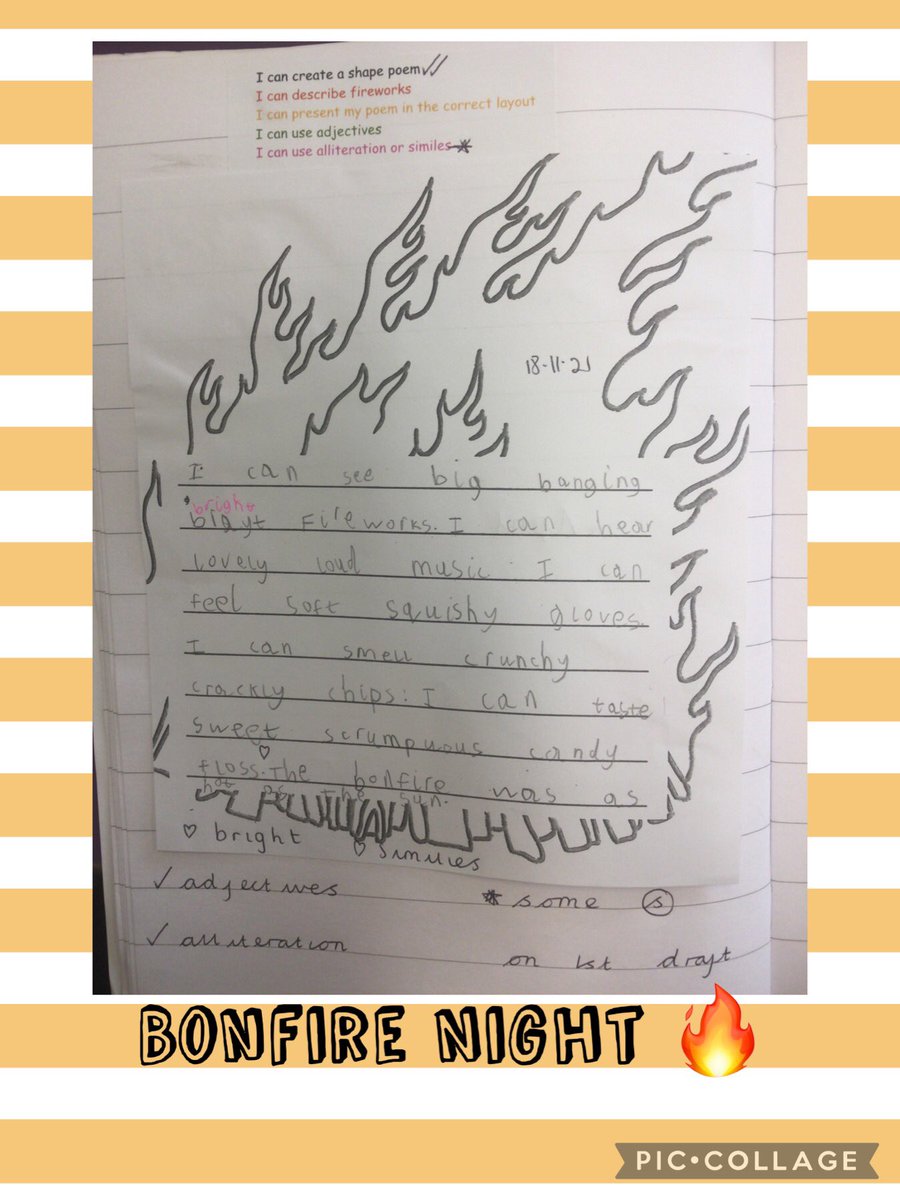 I can create a shape poem
I can describe fireworks
I can present my poem in the correct layout
I can use adjectives
I can use alliteration or similes
18-11-21
I can see big banging
bright
bigyt Fireworks. I can hear
lovely loud music. I can
feel soft squishy gloves.
I can smell crunchy
crackly chips. I can taste
sweet scrumpuous candy
floss. The bonfire was as
hot as the sun.
bright
Similies
adjectives
some S
alliteration
on 1st draft
BONFIRE NIGHT
PIC•COLLAGE